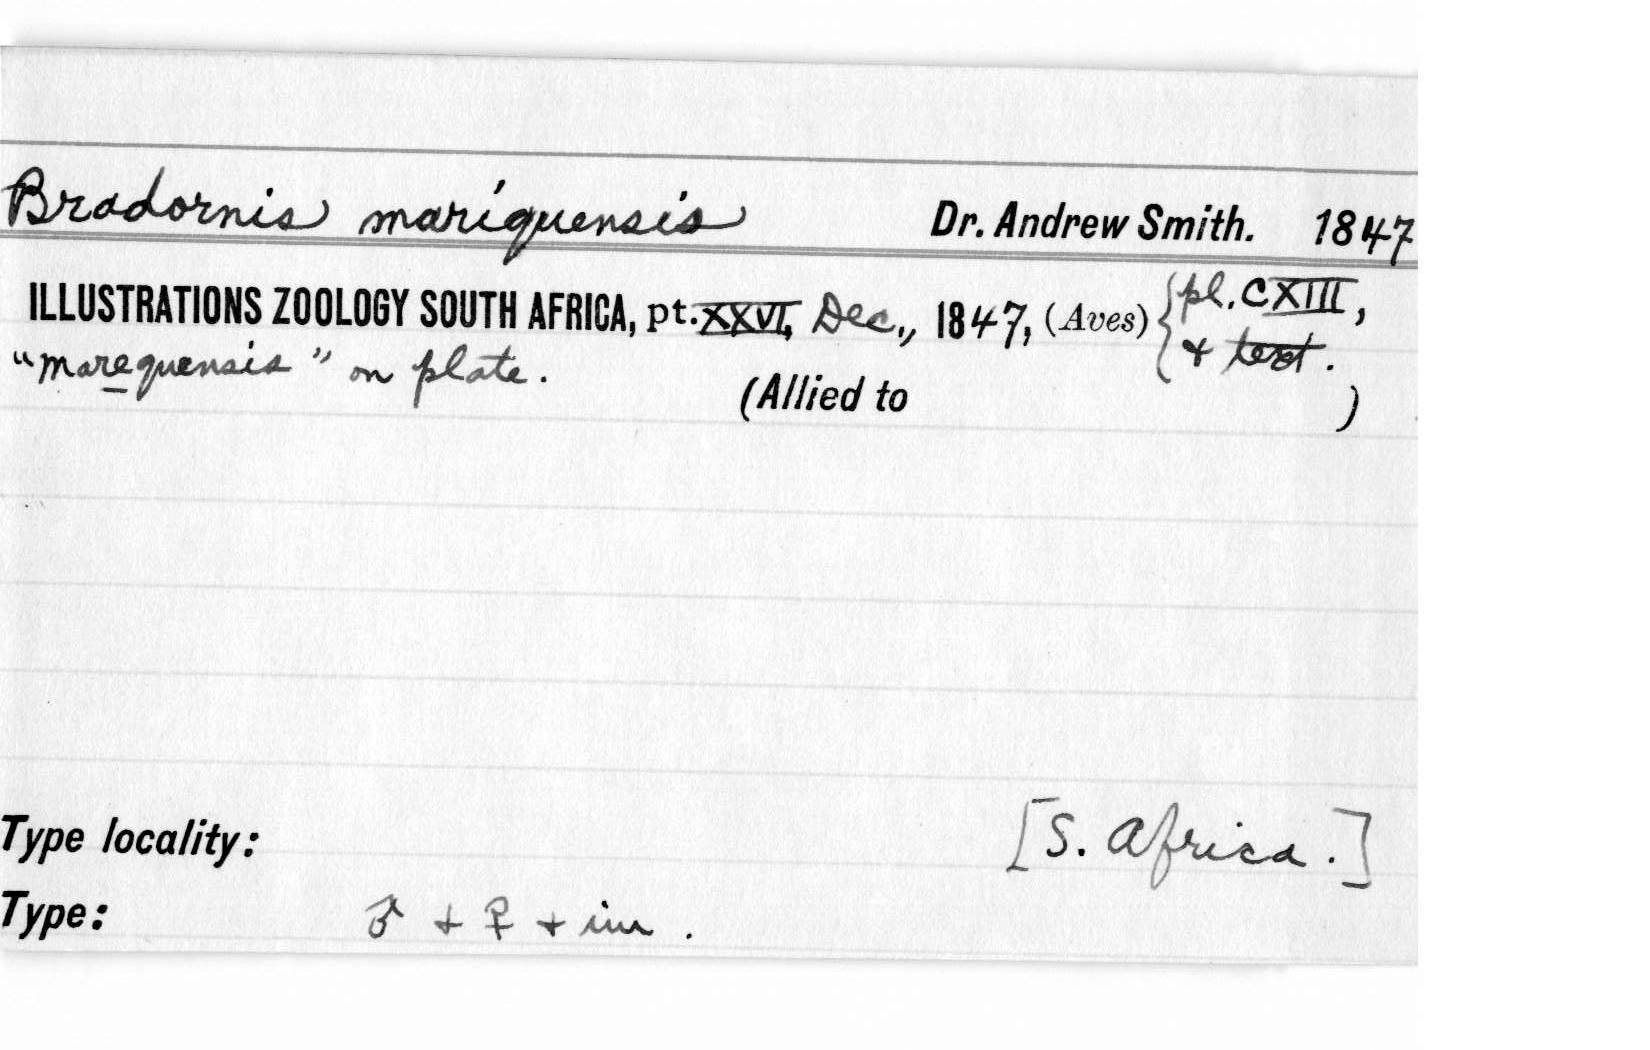 Bradornis mariquensis Dr. Andrew Smith. 1847
ILLUSTRATIONS ZOOLOGY SOUTH AFRICA, pt. XXVI, Dec., 1847, (Aves) { pl. CXIII,
& text.
"marequensis" on plate.
(Allied to )
Type locality: [S. Africa.]
Type: ♂ + ♀ + im.